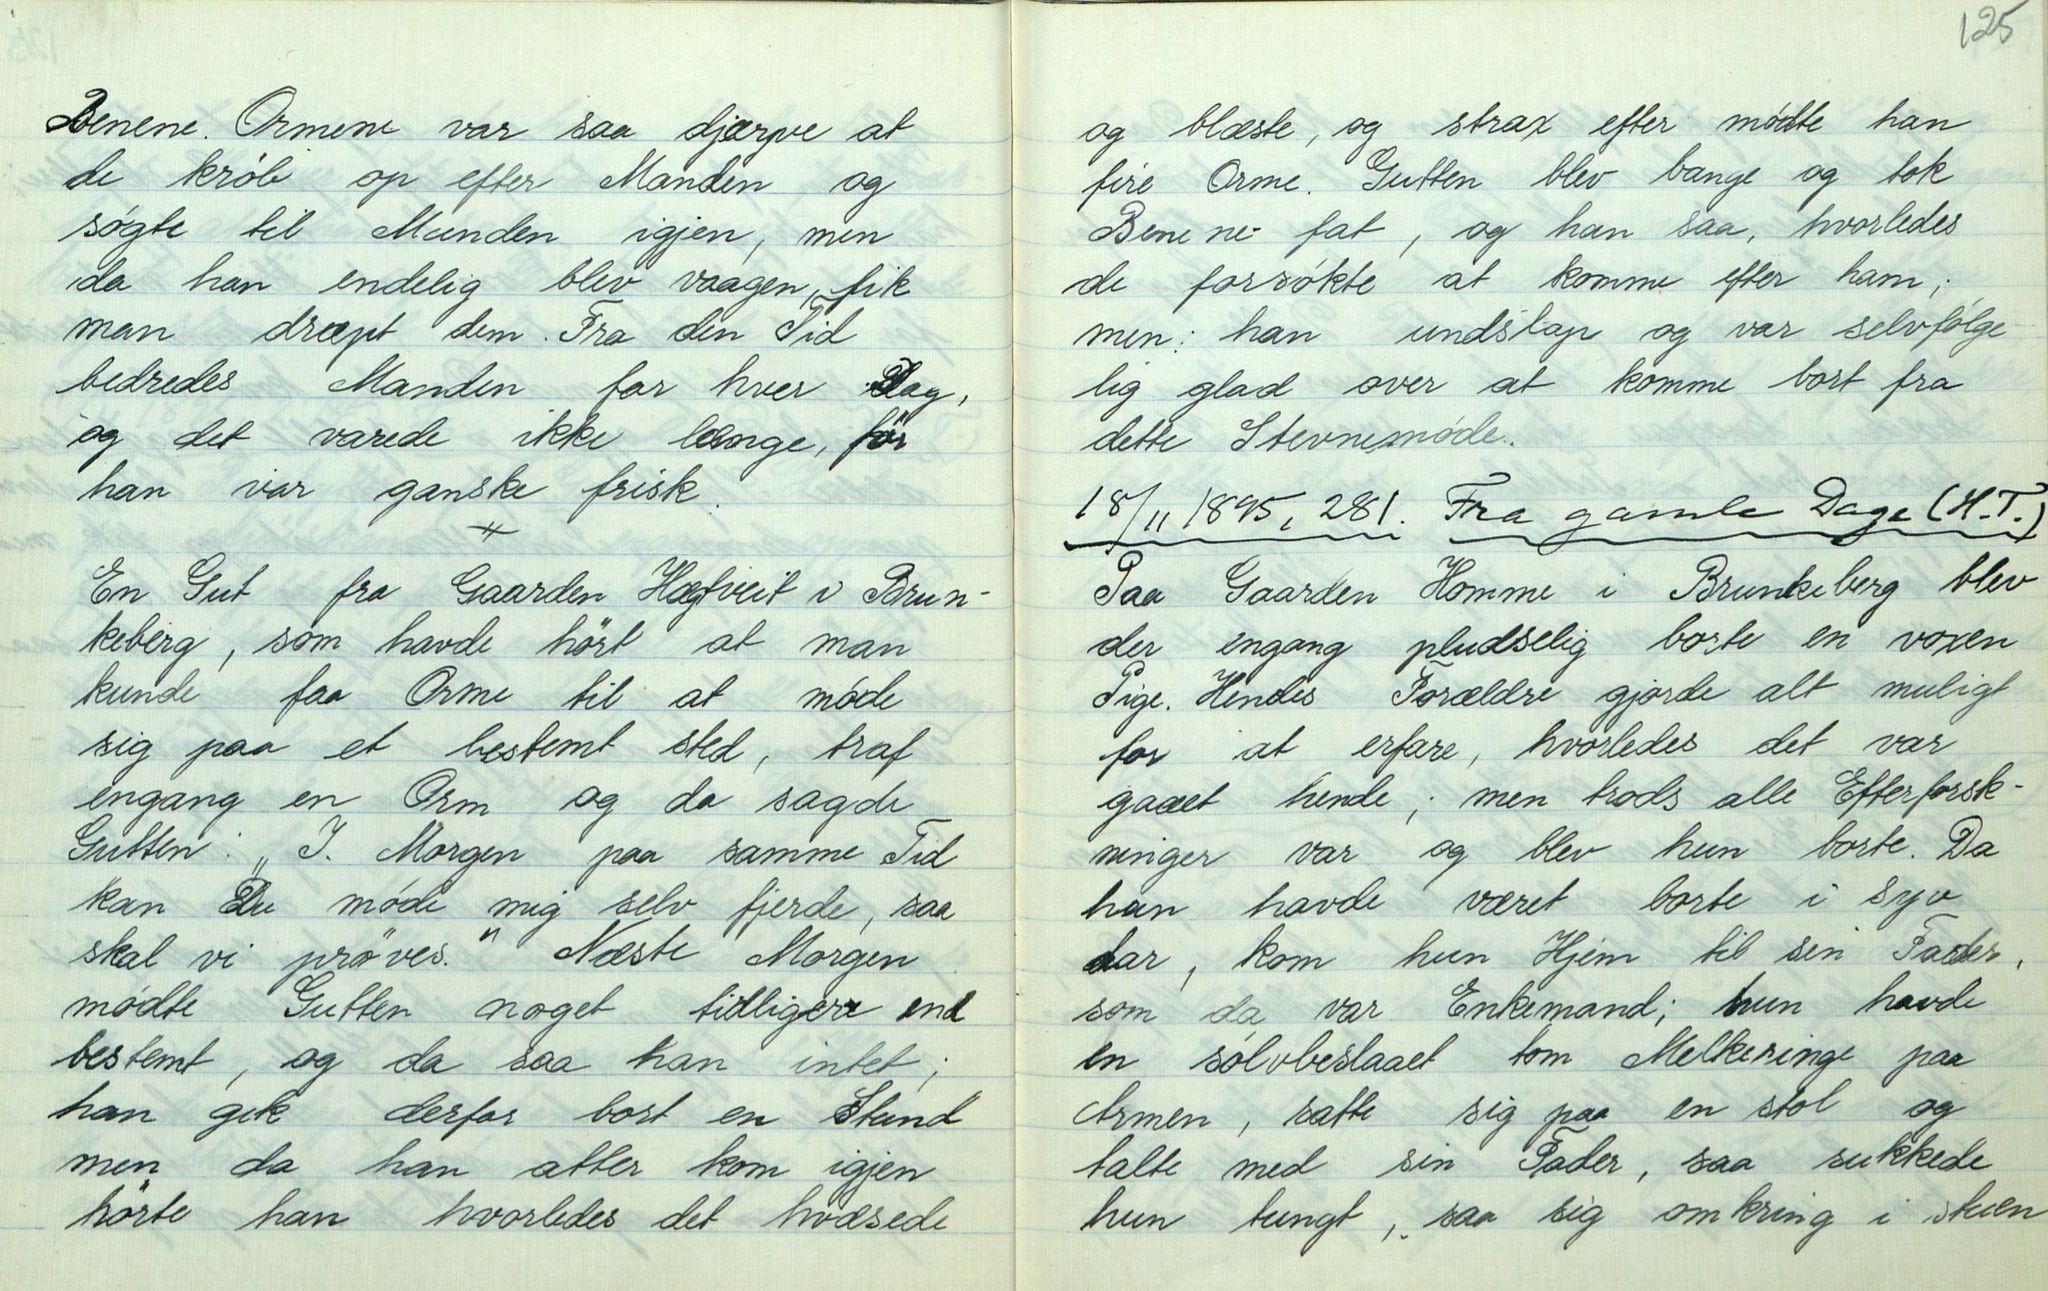 Benene. Ormene var saa djærve at
de krób op efter Manden og
sógte til Munden igjen, men
da han endelig blev vaagen, fik
man dræpt dem. Fra den Tid
bedredes Manden for hver Dag,
og det varede ikke længe, för
han var ganske frisk.
En Gut fra Gaarden Hægtveit i Brun-
keberg, som havde hört at man
kunde faa Orme til at móde
sig paa et bestemt sted, traf
engang en Orm og da sagde
Gutten: „I Morgen paa samme Tid
kan Du móde mig selv fjerde, saa
skal vi pröves." Næste Morgen
módte Gutten noget tidligere end
bestemt, og da saa han intet;
han gik derfor bort en Stund
men da han atter kom igjen
hörte han hvorledes det hvæsede
125
og blæste, og strax efter módte han
fire Orme. Gutten blev bange og tok
Benene fat, og han saa, hvorledes
de forsókte at komme efter ham;
men han undslap og var selvfólge
lig glad over at komme bort fra
dette Stevnemóde.
18/11 1895, 281. Fra gamle Dage (H.T.)
Paa Gaarden Homme i Brunkeberg blev
der engang pludselig borte en voxen
Pige. Hendes Forældre gjorde alt muligt
for at erfare, hvorledes det var
gaaet hende; men trods alle Efterforsk-
ninger var og blev hun borte. Da
hun havde været borte i syv
aar, kom hun Hjem til sin Fader,
som da var Enkemand; hun havde
en sólvbeslaaet tom Melkeringe paa
Armen, satte sig paa en stol og
talte med sin Fader, saa sukkede
hun tungt, saa sig omkring i stuen